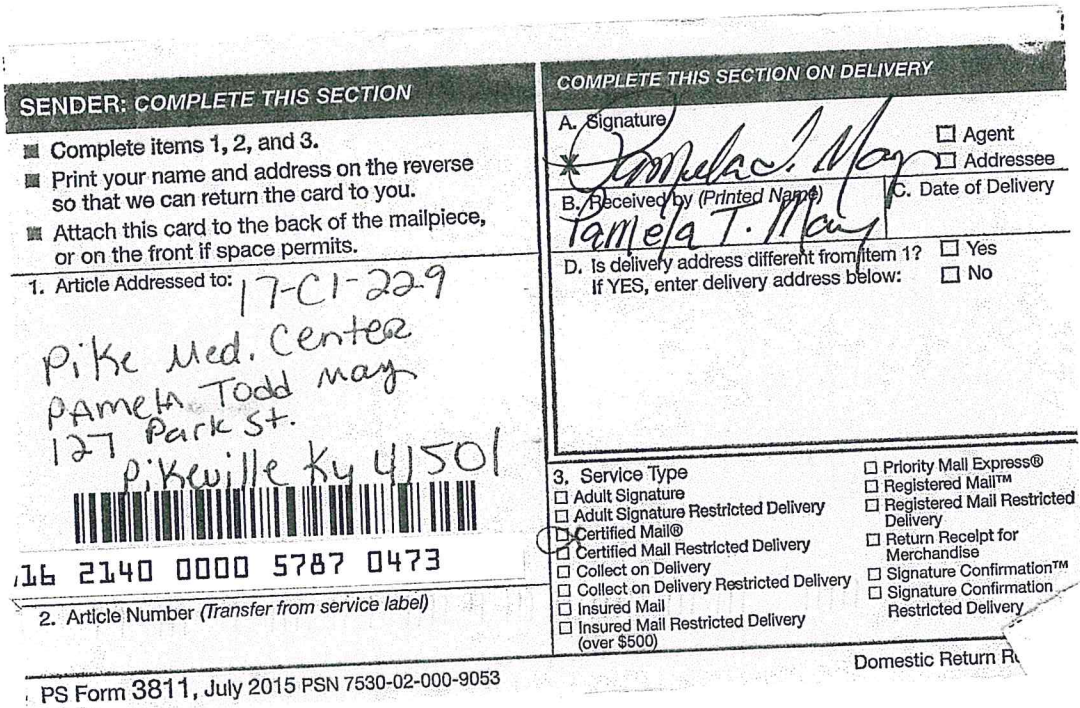 SENDER: COMPLETE THIS SECTION
■ Complete items 1, 2, and 3.
■ Print your name and address on the reverse
so that we can return the card to you.
■ Attach this card to the back of the mailpiece,
or on the front if space permits.
1. Article Addressed to: 17-C1-229
Pike Med. Center
PAmela Todd May
127 Park St.
Pikeville Ky 41501
16 2140 0000 5787 0473
2. Article Number (Transfer from service label)
COMPLETE THIS SECTION ON DELIVERY
A. Signature
Pamela T. May
☐ Agent
☐ Addressee
B. Received by (Printed Name)
C. Date of Delivery
Pamela T. May
D. Is delivery address different from item 1? ☐ Yes
If YES, enter delivery address below: ☐ No
3. Service Type
☐ Adult Signature
☐ Adult Signature Restricted Delivery
☒ Certified Mail®
☐ Certified Mail Restricted Delivery
☐ Collect on Delivery
☐ Collect on Delivery Restricted Delivery
☐ Insured Mail
☐ Insured Mail Restricted Delivery
(over $500)
☐ Priority Mail Express®
☐ Registered Mail™
☐ Registered Mail Restricted
Delivery
☐ Return Receipt for
Merchandise
☐ Signature Confirmation™
☐ Signature Confirmation
Restricted Delivery
PS Form 3811, July 2015 PSN 7530-02-000-9053
Domestic Return